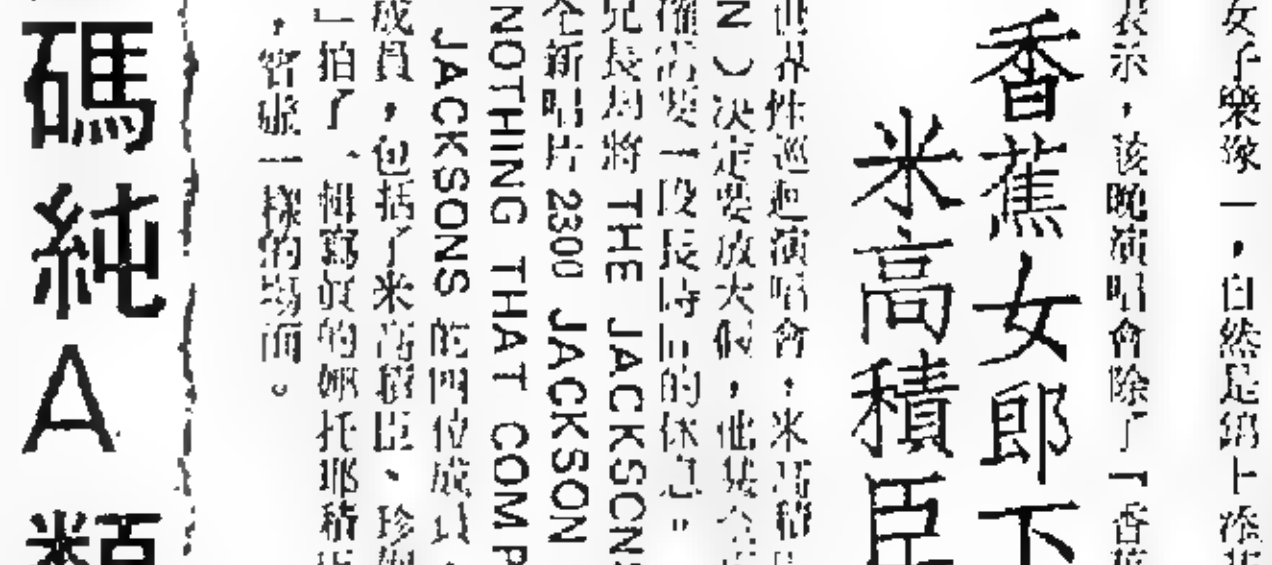 女子樂隊一，自然是錦上添花
表示，該晚演唱會除了「香蕉
香蕉女郎下
米高積臣
世界性巡迴演唱會，米高積臣
N）決定要放大假，他基本上
確需要一段長時間的休息。
兄長均將 THE JACKSONS
全新唱片 2300 JACKSON
NOTHING THAT COMP
JACKSONS 的四位成員，
成員，包括了米高積臣、珍
」拍了一輯寫真的娜托耶積臣
，一樣的場面。
碼純A類